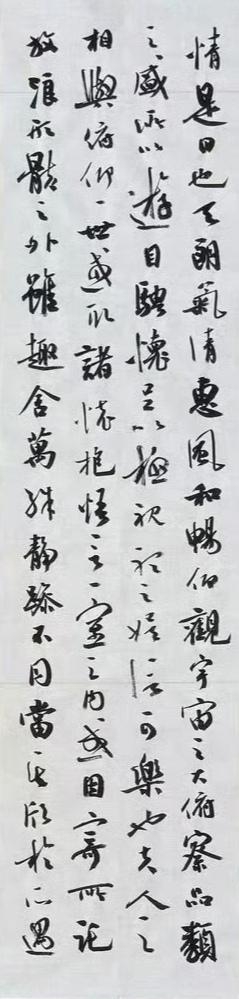 情是日也天朗氣清惠風和暢仰觀宇宙之大俯察品類
之盛所以遊目騁懷足以極視聽之娱信可樂也夫人之
相與俯仰一世或取諸懷抱悟言一室之内或因寄所託
放浪形骸之外雖趣舍萬殊静躁不同當其欣於所遇